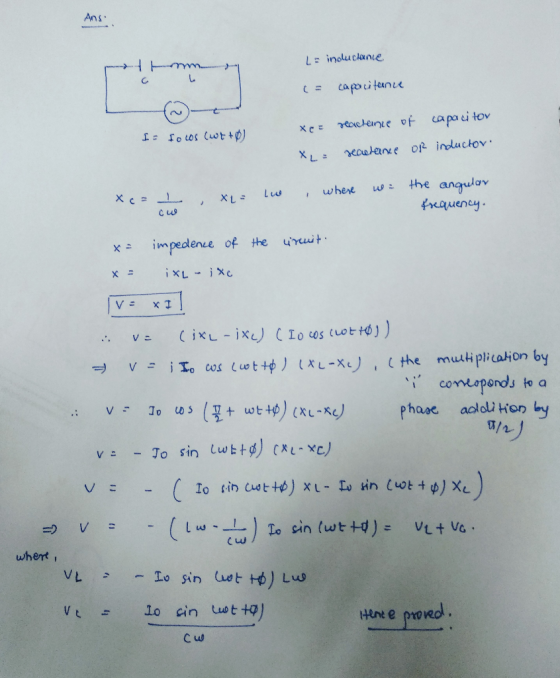 Ans.
L = inductance
C = capacitance
C L
~
I = I₀ cos (ωt+ϕ)
x_C = reactance of capacitor
x_L = reactance of inductor.
x_C = 1/Cω , x_L = Lω , where ω = the angular frequency.
x = impedence of the circuit.
x = i x_L - i x_C
V = x I
∴ V = (i x_L - i x_C) (I₀ cos (ωt+ϕ))
⇒ V = i I₀ cos (ωt+ϕ) (x_L - x_C) , ( the multiplication by
'i' corresponds to a
∴ V = I₀ cos (π/2 + ωt+ϕ) (x_L - x_C) phase addition by
π/2 )
V = - I₀ sin (ωt+ϕ) (x_L - x_C)
V = - ( I₀ sin (ωt+ϕ) x_L - I₀ sin (ωt + ϕ) x_C )
⇒ V = - (Lω - 1/Cω) I₀ sin (ωt+ϕ) = V_L + V_C .
where,
V_L = - I₀ sin (ωt +ϕ) Lω
V_C = I₀ sin (ωt+ϕ) / Cω Hence proved.